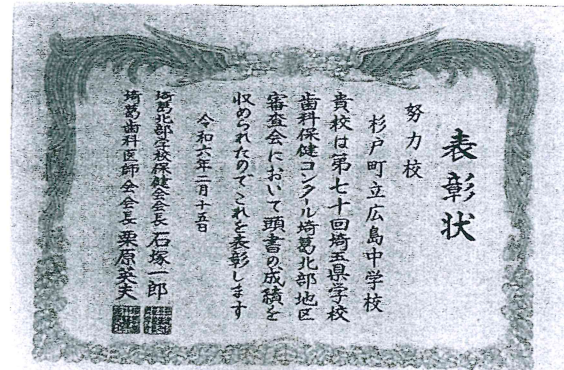 表彰状
努力校
杉戸町立広島中学校
貴校は第七十回埼玉県学校
歯科保健コンクール埼葛北部地区
審査会において頭書の成績を
収められたのでこれを表彰します
令和六年二月十五日
埼葛北部学校保健会会長 石塚一郎
埼葛歯科医師会会長 栗原英夫